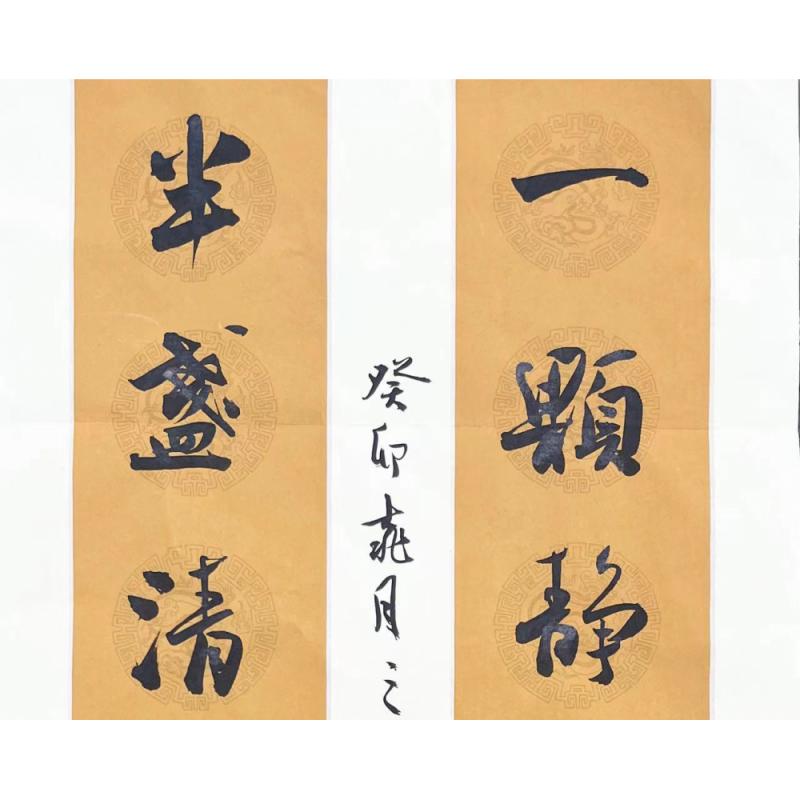 一顆静
癸卯月之
半盞清